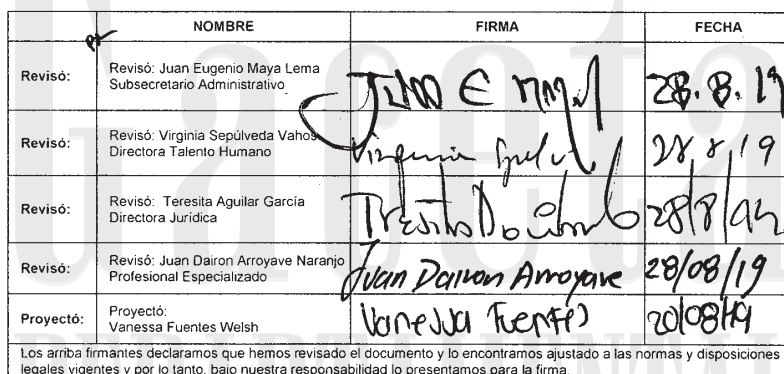 NOMBRE FIRMA FECHA
Revisó: Revisó: Juan Eugenio Maya Lema
Subsecretario Administrativo 28.8.19
Revisó: Revisó: Virginia Sepúlveda Vahos
Directora Talento Humano Virginia 28/8/19
Revisó: Revisó: Teresita Aguilar García
Directora Jurídica 28/8/
Revisó: Revisó: Juan Dairon Arroyave Naranjo
Profesional Especializado Juan Dairon Arroyave 28/08/19
Proyectó: Proyectó:
Vanessa Fuentes Welsh Vanessa Fuentes 20/08/19
Los arriba firmantes declaramos que hemos revisado el documento y lo encontramos ajustado a las normas y disposiciones
legales vigentes y por lo tanto, bajo nuestra responsabilidad lo presentamos para la firma.